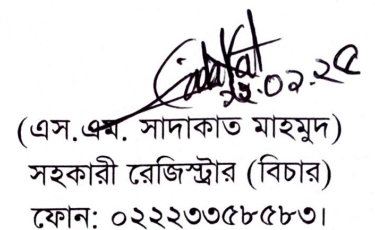 Sadakat
২৯.০২.২৫
(এস.এম. সাদাকাত মাহমুদ)
সহকারী রেজিস্ট্রার (বিচার)
ফোন: ০২২২৩৩৫৮৫৮৩।